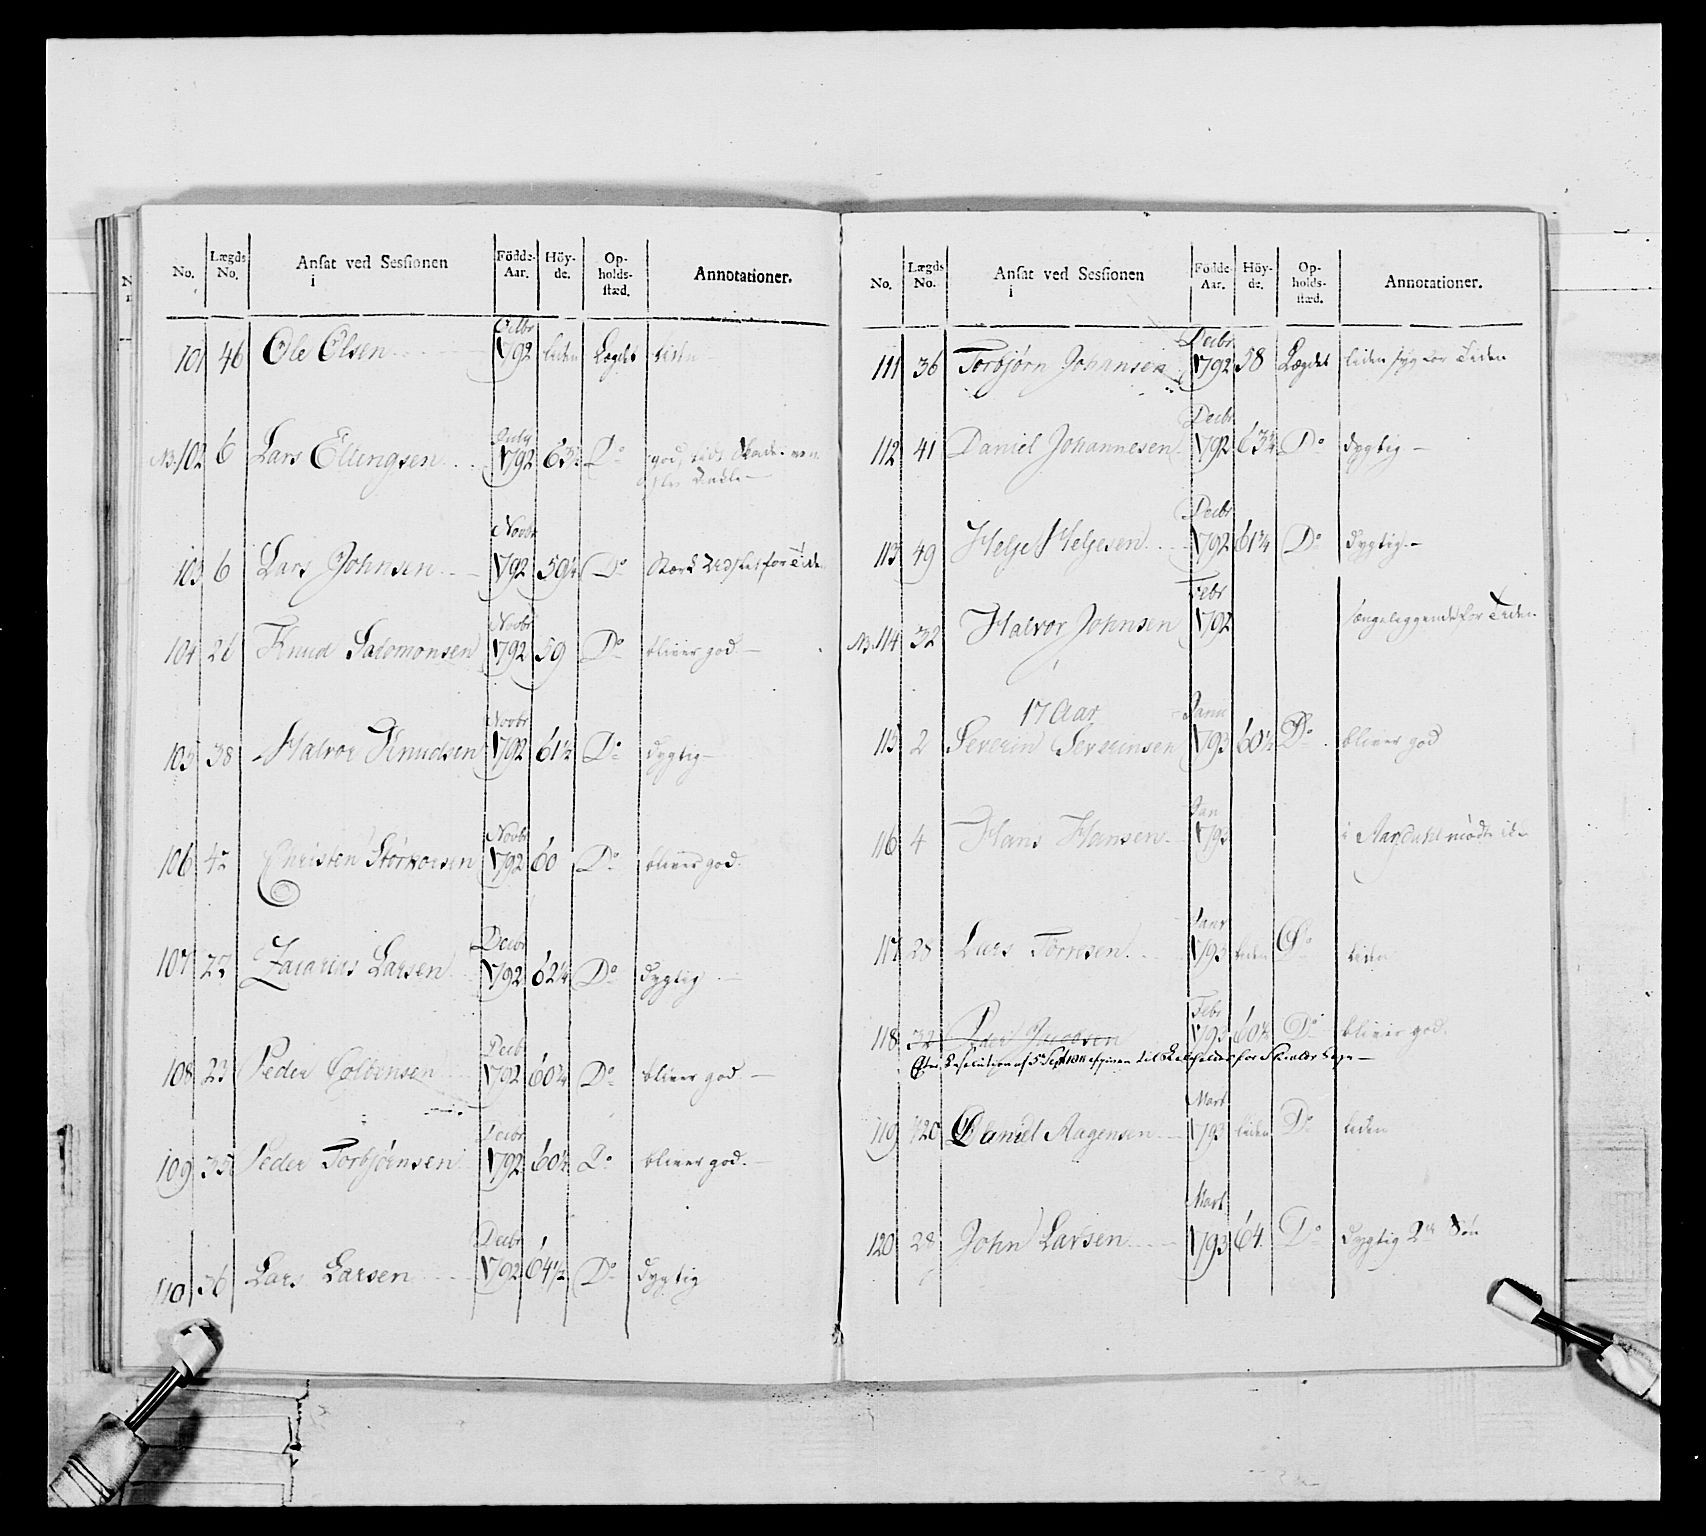 No. Lægds No. Ansat ved Sessionen i Födde-Aar. Höy-de. Op-holds-stæd. Annotationer.
101 46 Ole Olsen Octbr 1792 liden Lægdet liden
NB. 102 6 Lars Ellingsen July 1792 63½ Do god,
103 6 Lars Johnsen Novbr 1792 59¼ Do for Tiden
104 26 Knud Salomonsen Novbr 1792 59 Do bliver god
105 38 Halvor Knudsen Novbr 1792 61½ Do dygtig
106 42 Christen Novbr 1792 60 Do bliver god.
107 22 Zacarias Larsen Decbr 1792 62¼ Do dygtig
108 23 Peder Decb 1792 60¼ Do bliver god
109 35 Peder Torbjörnsen Decbr 1792 60½ Do bliver god.
110 36 Lars Larsen Decbr 1792 64½ Do dygtig
No. Lægds No. Ansat ved Sessionen i Födde-Aar. Höy-de. Op-holds-stæd. Annotationer.
111 36 Torbjørn Johansen Decbr 1792 58 Lægdet liden syg for Tiden
112 41 Daniel Johannesen Decbr 1792 63¼ Do dygtig
113 49 Helje Heljesen Decbr 1792 61¼ Do dygtig
NB. 114 32 Halvor Johnsen Febr 1792 sængeliggende for Tiden
17 Aar
115 2 Severin Severinsen Janu 1793 60½ Do bliver god
116 4 Hans Hansen Jan 1793 i mödte
117 28 Lars Törresen Janr 1793 liden Do liden
118 32 Peder Jacobsen Febr 1793 60½ Do bliver god.
Resolution af 5 Sept 1811 til for
119 120 Daniel Aagensen Mart 1793 liden Do liden
120 28 John Larsen Mart 1793 64 Do dygtig 2de Sön